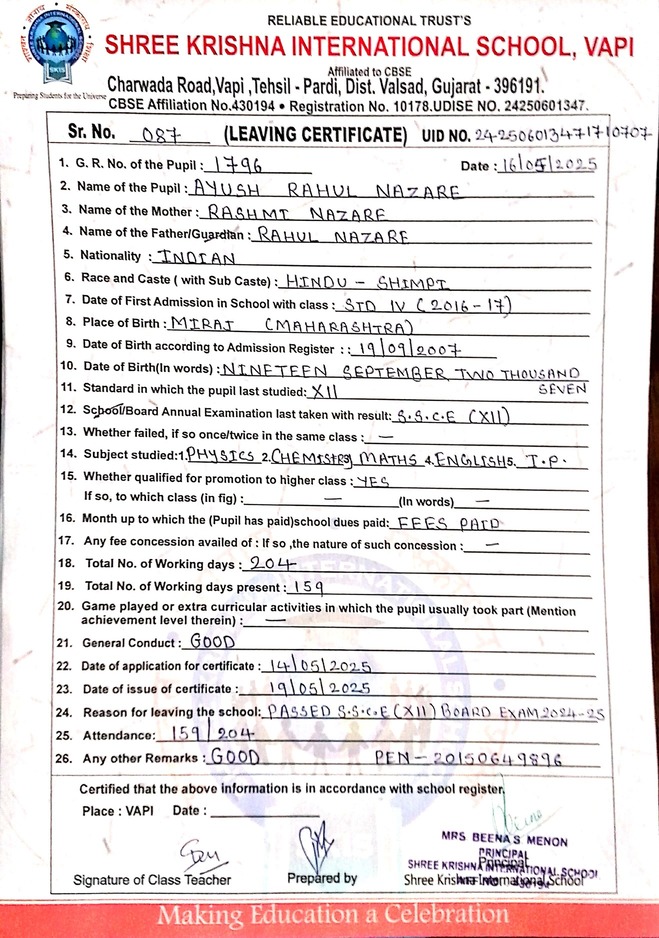 RELIABLE EDUCATIONAL TRUST'S
SHREE KRISHNA INTERNATIONAL SCHOOL, VAPI
Affiliated to CBSE
Charwada Road,Vapi ,Tehsil - Pardi, Dist. Valsad, Gujarat - 396191.
CBSE Affiliation No.430194 • Registration No. 10178.UDISE NO. 24250601347.
SKIS
Preparing Students for the Universe
Sr. No. 087 (LEAVING CERTIFICATE) UID NO. 242506013471710707
1. G. R. No. of the Pupil : 1796 Date : 16/05/2025
2. Name of the Pupil : AYUSH RAHUL NAZARE
3. Name of the Mother : RASHMI NAZARE
4. Name of the Father/Guardian : RAHUL NAZARE
5. Nationality : INDIAN
6. Race and Caste ( with Sub Caste) : HINDU - SHIMPI
7. Date of First Admission in School with class : STD IV (2016-17)
8. Place of Birth : MIRAJ (MAHARASHTRA)
9. Date of Birth according to Admission Register : : 19/09/2007
10. Date of Birth(In words) : NINETEEN SEPTEMBER TWO THOUSAND
SEVEN
11. Standard in which the pupil last studied: XII
12. School/Board Annual Examination last taken with result: S.S.C.E (XII)
13. Whether failed, if so once/twice in the same class : —
14. Subject studied:1.PHYSICS 2.CHEMISTRY 3.MATHS 4.ENGLISH 5. I.P.
15. Whether qualified for promotion to higher class : YES
If so, to which class (in fig) : — (In words) —
16. Month up to which the (Pupil has paid)school dues paid: FEES PAID
17. Any fee concession availed of : If so ,the nature of such concession : —
18. Total No. of Working days : 204
19. Total No. of Working days present : 159
20. Game played or extra curricular activities in which the pupil usually took part (Mention
achievement level therein) : —
21. General Conduct : GOOD
22. Date of application for certificate : 14/05/2025
23. Date of issue of certificate : 19/05/2025
24. Reason for leaving the school: PASSED S.S.C.E (XII) BOARD EXAM 2024-25
25. Attendance: 159/204
26. Any other Remarks : GOOD PEN - 20150649896
Certified that the above information is in accordance with school register.
Place : VAPI Date :
MRS BEENA S MENON
PRINCIPAL
SHREE KRISHNA INTERNATIONAL SCHOOL
Principal
Signature of Class Teacher Prepared by Shree Krishna International School
Making Education a Celebration